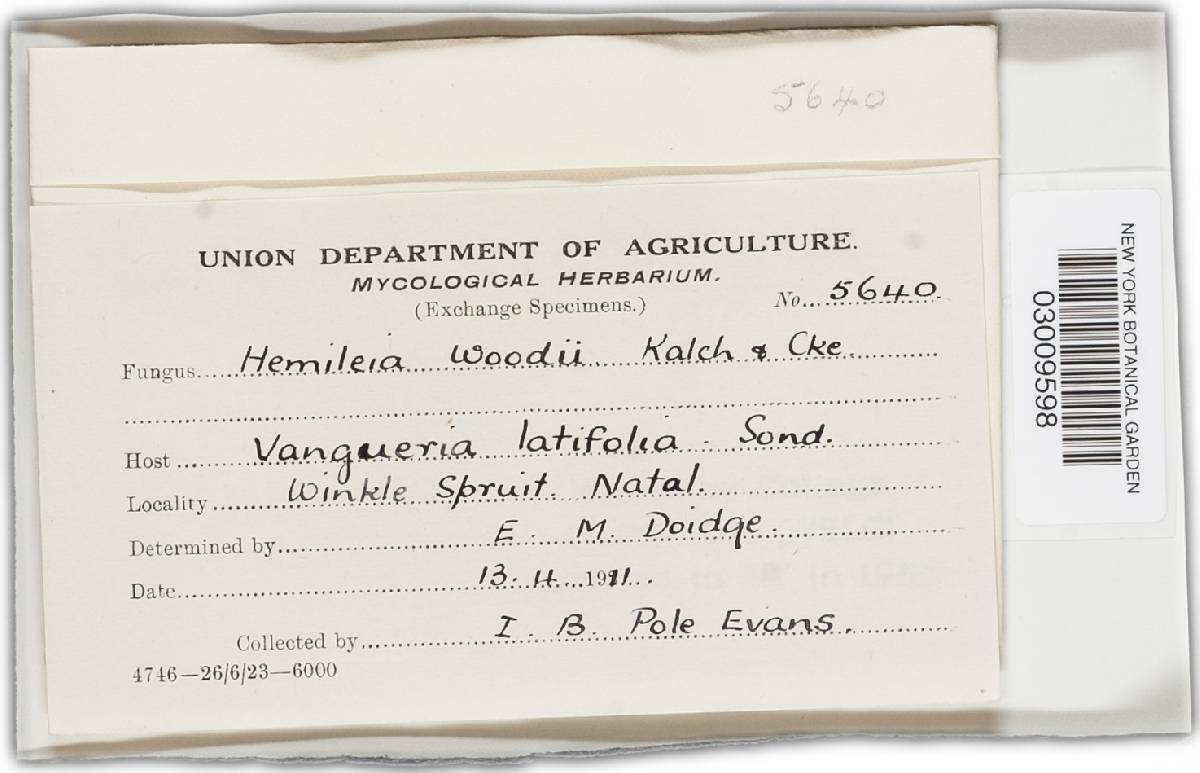 5640
UNION DEPARTMENT OF AGRICULTURE.
MYCOLOGICAL HERBARIUM.
(Exchange Specimens.)
No... 5640.
Fungus... Hemileia Woodii Kalch & Cke.
Host... Vangueria latifolia. Sond.
Locality... Winkle Spruit. Natal.
Determined by... E. M. Doidge.
Date... 13. 4. 1911.
Collected by... I. B. Pole Evans.
4746—26/6/23—6000
NEW YORK BOTANICAL GARDEN
03009598